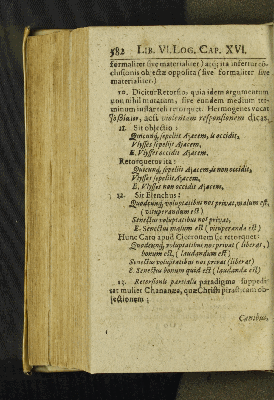 582 LIB. VI. LOG. CAP. XVI.
formaliter sive materialiter) atq; ita infertur co-
clusionis objectæ opposita (sive formaliter sive
materialiter.)
10. Dicitur Retorsio, quia idem argumentum
non nihil mutatum, sive eundem medium ter-
minum instar teli retorquet. Hermogenes vocat
acsi violentam responsionem dicas.
11. Sit objectio:
Quicunq; sepelijt Ajacem, is occidit,
Ulysses sepelijt Ajacem,
E. Ulysses occidit Ajacem.
Retorqueturita:
Quicunq; sepelijt Ajacem, is non occidit,
Ulysses sepelijt Ajacem,
E. Ulysses non occidit Ajacem.
12. Sit Elenchus:
Quodcunq; voluptatibus nos privat, malum est,
(vituperandum est)
Senectus voluptatibus nos privat,
E. Senectus malum est (vituperanda est)
Hunc Cato apud Ciceronem sic retorquet:
Quodcunq; voluptatibus nos privat (liberat,)
bonum est, (laudandum est)
Senectus voluptatibus nos privat (liberat)
E. Senectus bonum quid est (laudanda est)
13. Retorsionis partialis paradigma suppedi-
tat mulier Chananæa, quæ Christi pirasticam ob-
jectionem;
Canibus,